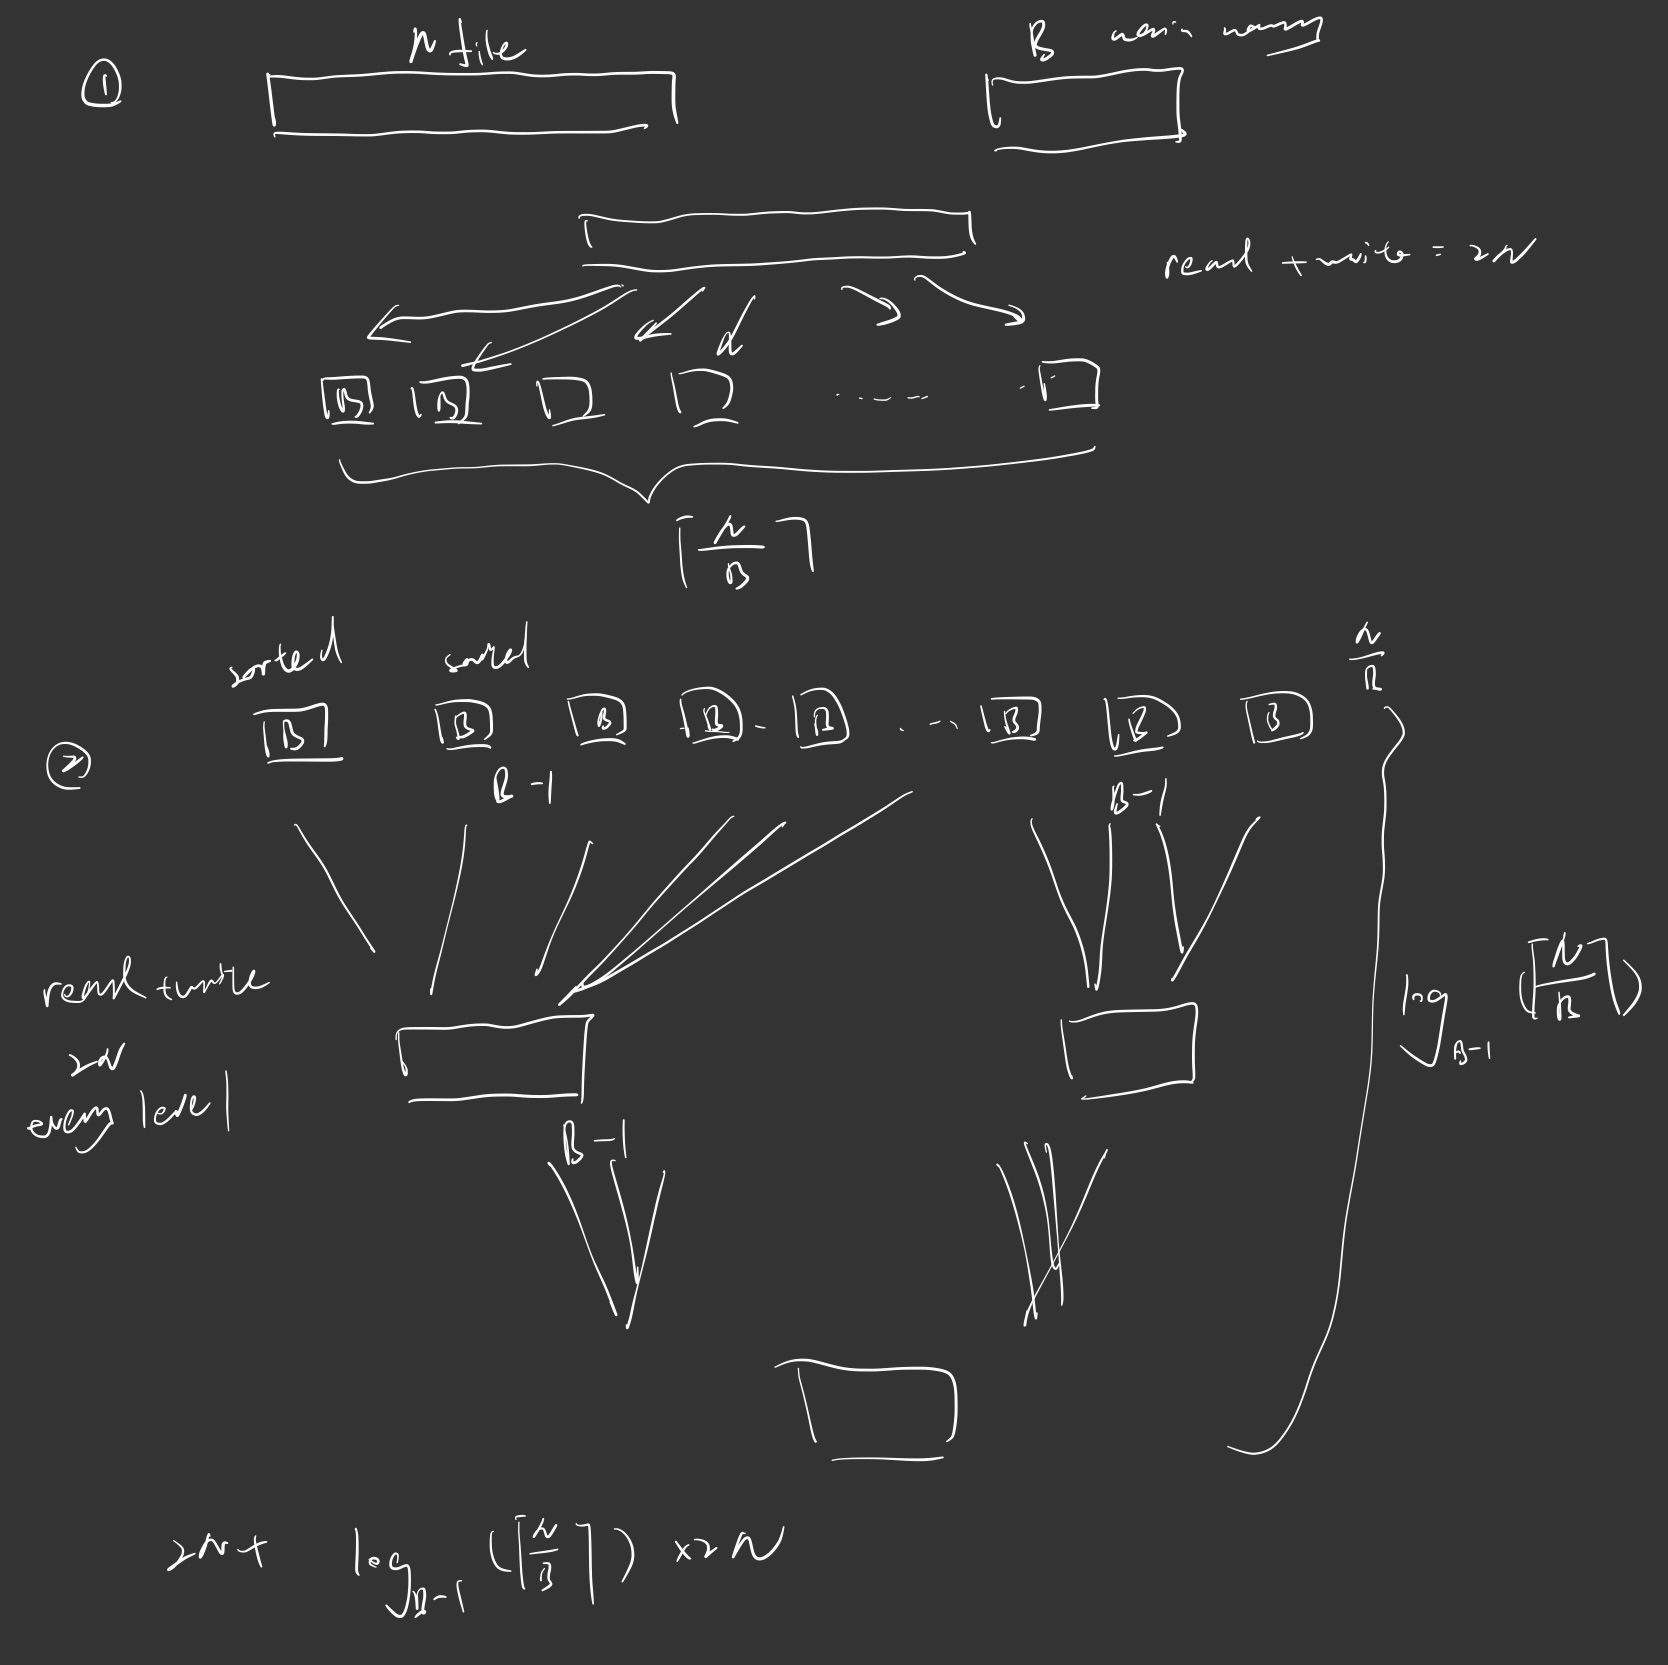 ①
N file
B main memory
read + write = 2N
B B ......
⌈N/B⌉
②
sorted sorted N/B
B B B B B ... B B B
B-1 B-1
read + write
2N
every level
log_{B-1} (⌈N/B⌉)
B-1
2N + log_{B-1} (⌈N/B⌉) x 2N